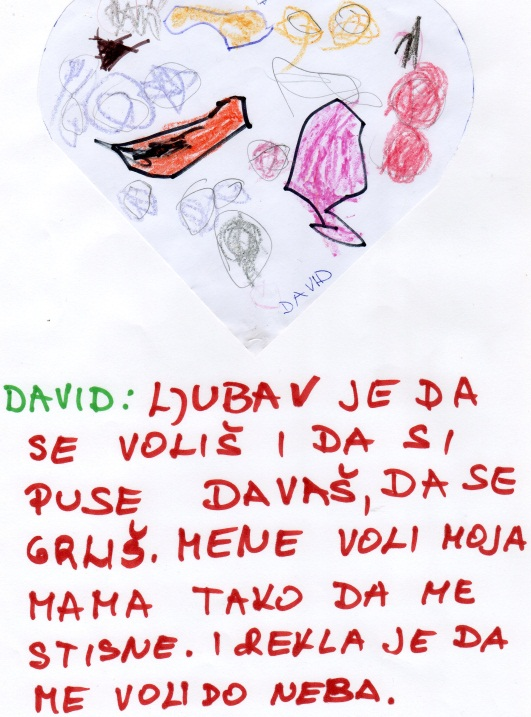 DAVID
DAVID: LJUBAV JE DA
SE VOLIŠ I DA SI
PUSE DAVAŠ, DA SE
GRLIŠ. MENE VOLI MOJA
MAMA TAKO DA ME
STISNE. I REKLA JE DA
ME VOLI DO NEBA.